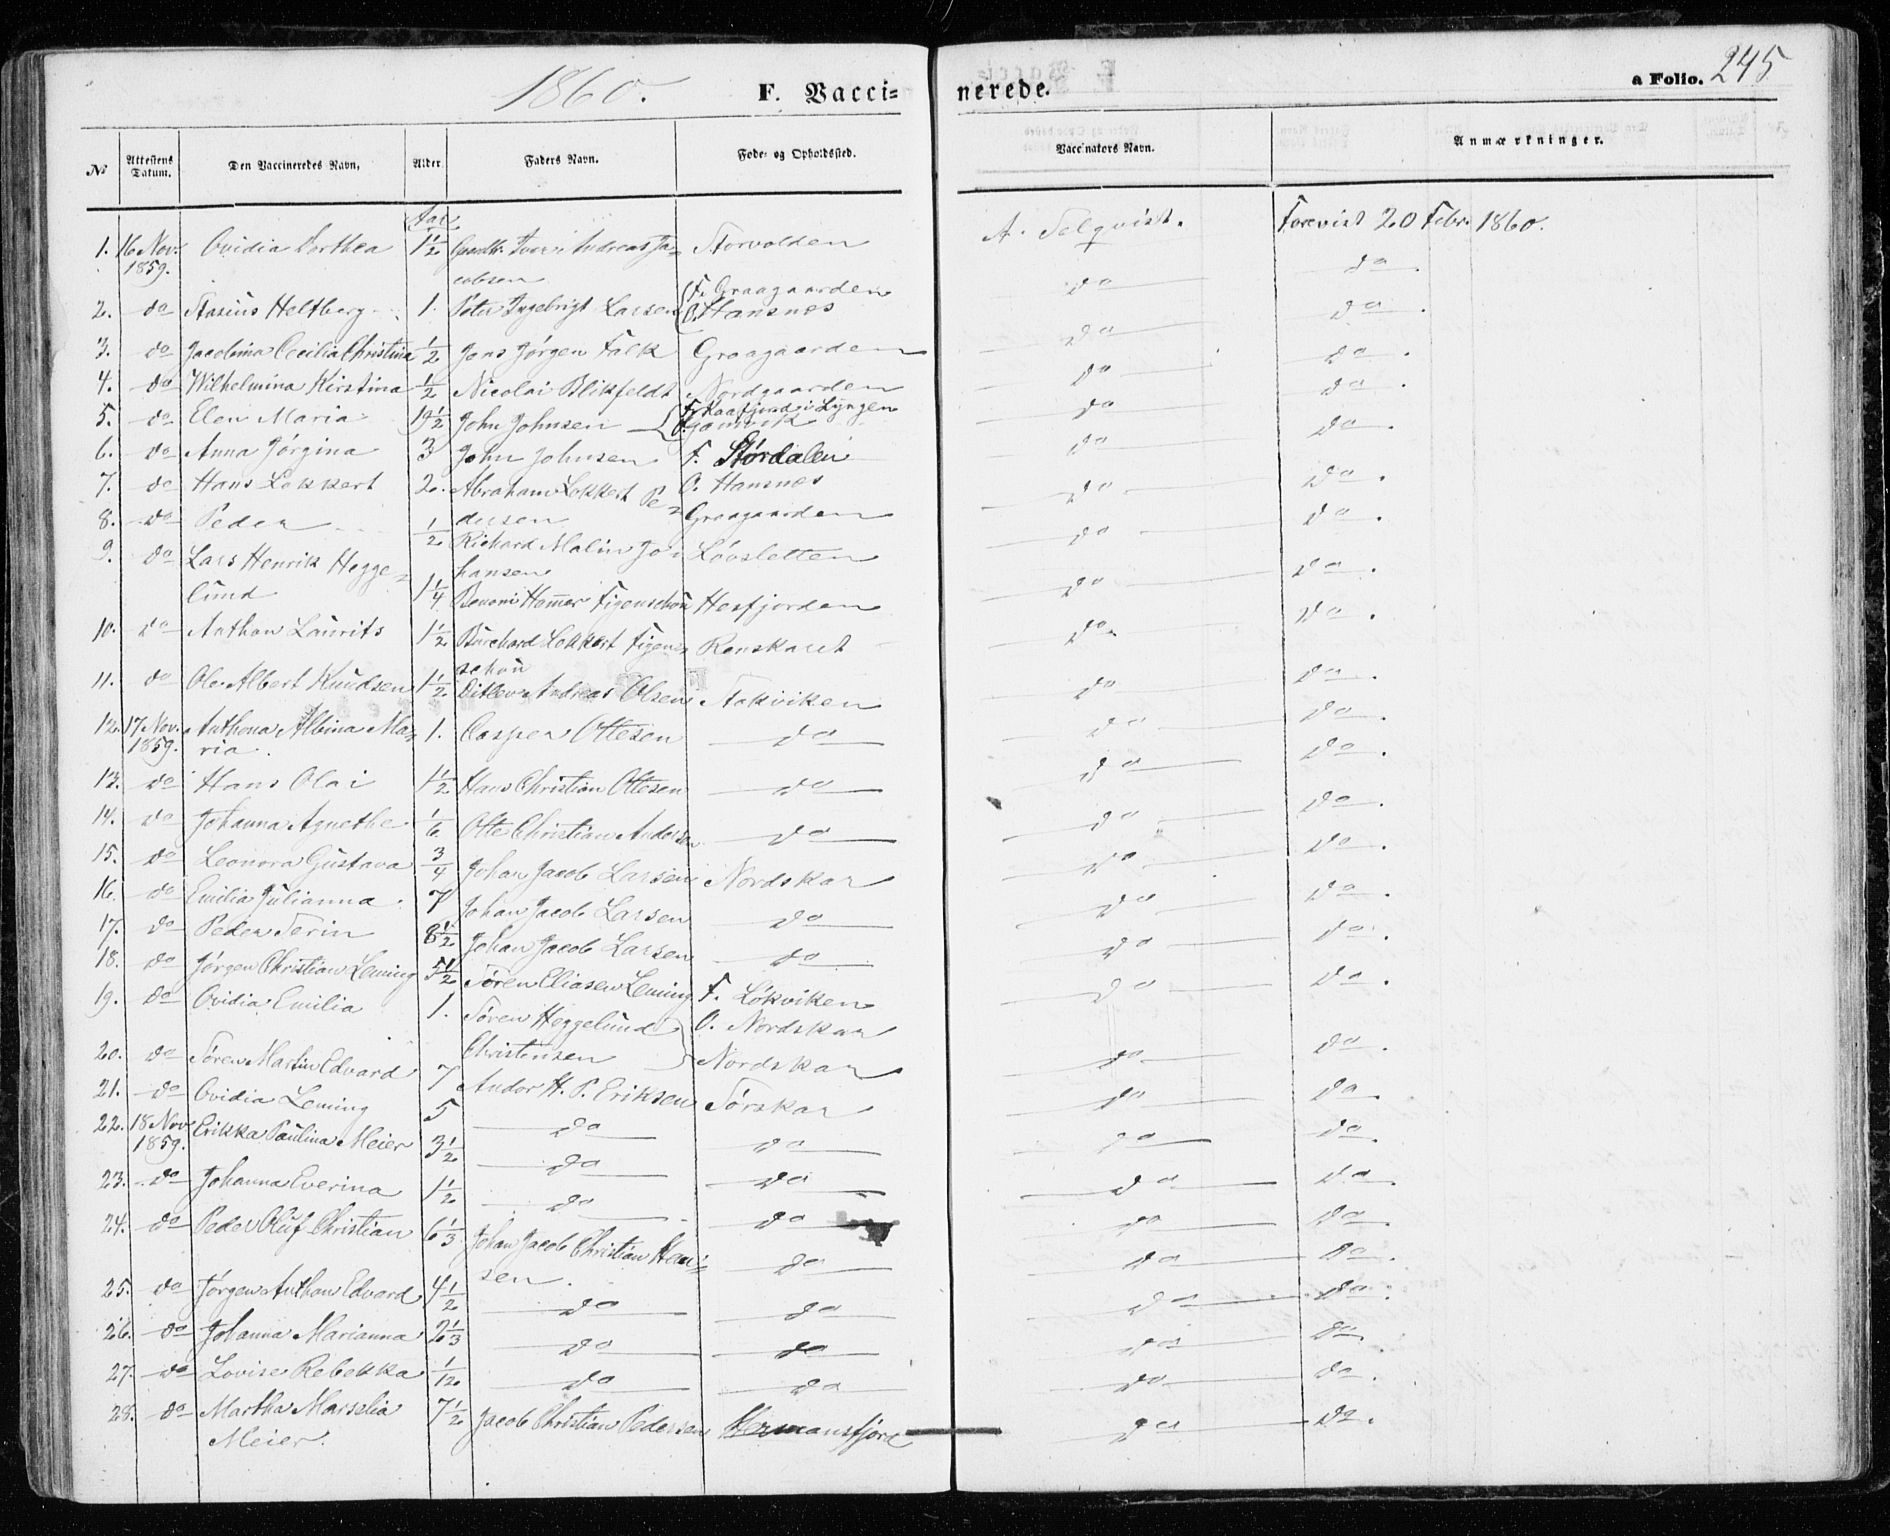 1860. F. Vacci= nerede. a Folio. 245
No Attestens Datum. Den Vaccineredes Navn, Alder Faders Navn. Føde- og Opholdssted. Vaccinators Navn. Anmærkninger.
Aar
1. 16 Nov. 1859. Ovidia Dorthea 1 1/2 Iver Andreas Ja= cobsen Storvolden Forevist 20 Febr. 1860.
2. do Heltberg 1. Peter Ingebrigt Larsen F. Graagaarden O. Hansnes do do
3. do Jacobina Cecilia Christina 1/2 Jens Jørgen Falk Graagaarden do do
4. do Wilhelmina Kirstina 1/2 Nicolai Blikfeldt Nordgaarden do do
5. do Elen Maria 19 1/2 John Johnsen F. Kaafjord i Lyngen do do
6. do Anna Jørgina 3 John Johnsen F. Stordalen do do
7. do Hans Lokkert 2. Abraham Lokkert Pe= dersen O. Hansnes do do
8. do Peder 1/2 Richard Malin Jo= hansen Graagaarden do do
9. do Lars Henrik Hegge= lund 1 1/4 Benoni Hamer Figenschou Løvsletten do do
Hesfjorden
10. do Anthon Laurits 1 1/2 Burchard Lokkert Figen= schou Renskaret do do
11. do Ole Albert Knudsen 1 1/2 Ditlev Andreas Olsen Stakviken do do
12. 17 Nov. 1859. Anthona Albina Ma= ria. 1. Casper Ottesen do do do
13. do Hans Olai 1 1/2 Hans Christian Ottesen do do do
14. do Johanna Agnethe 1/6 Otte Christian Andersen do do do
15. do Leonora Gustava 3/4 Johan Jacob Larsen Nordskar do do
16. do Emilia Julianna 7 Johan Jacob Larsen do do do
17. do Peder Serin 8 1/2 Johan Jacob Larsen do do do
18. do Jørgen Christian Leming 5 1/2 Søren Eliasen Leming F. Løkviken O. Nordskar do do
19. do Ovidia Emilia 1. Søren Heggelund Christensen Nordskar do do
20. do Søren Martin Edvard 7 Andor H. P. Eriksen Sørskar do do
21. do Ovidia Leming 5 do do do do
22. 18 Nov 1859. Erikka Paulina Meier 3 1/2 do do do do
23. do Johanna Everina 1 1/2 do do do do
24. do Peder Oluf Christian 6 1/3 Johan Jacob Christian Han= sen. do do do
25. do Jørgen Anthon Edvard 4 1/2 do do do do
26. do Johanna Marianna 2 1/3 do do do do
27. do Lovise Rebekka 1/12 do do do do
28. do Martha Marselia Meier. 7 1/2 Jacob Christian Pedersen Hermansfjord do do.